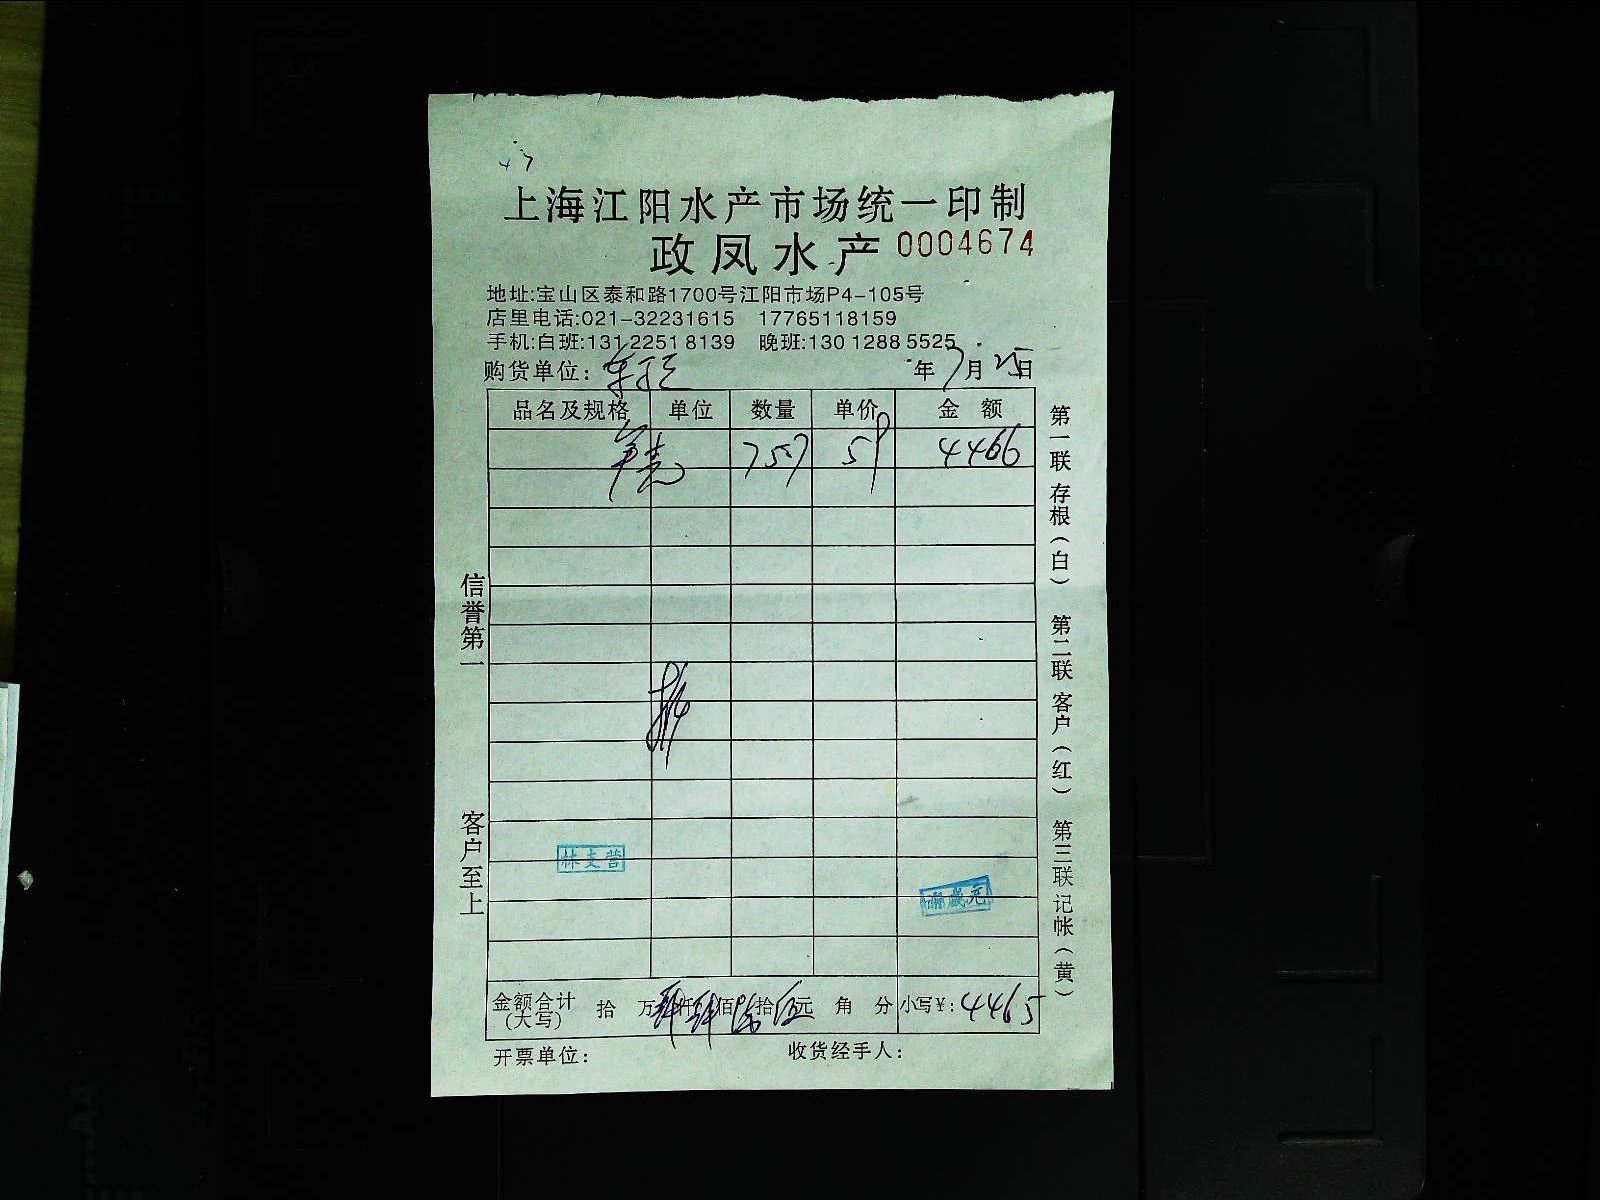 上海江阳水产市场统一印制
政凤水产 0004674
地址:宝山区泰和路1700号江阳市场P4-105号
店里电话:021-32231615 17765118159
手机:白班:131 2251 8139 晚班:130 1288 5525
购货单位: 年7月25日
品名及规格 单位 数量 单价 金额
757 59 4466
信誉第一 客户至上
林支营
金额合计(大写) 拾 万肆仟肆佰陆拾伍元 角 分 小写¥:4465
开票单位: 收货经手人:
第一联存根(白) 第二联客户(红) 第三联记帐(黄)